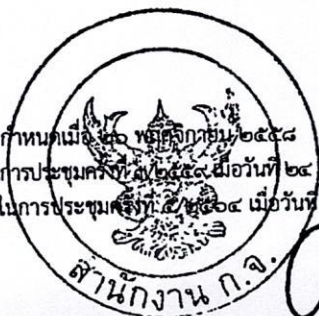 กำหนดเมื่อ ๒๖ พฤศจิกายน ๒๕๕๘
การประชุมครั้งที่ ๑/๒๕๕๙ เมื่อวันที่ ๒๔
ในการประชุมครั้งที่ ๕/๒๕๖๔ เมื่อวันที่
สำนักงาน ก.จ.